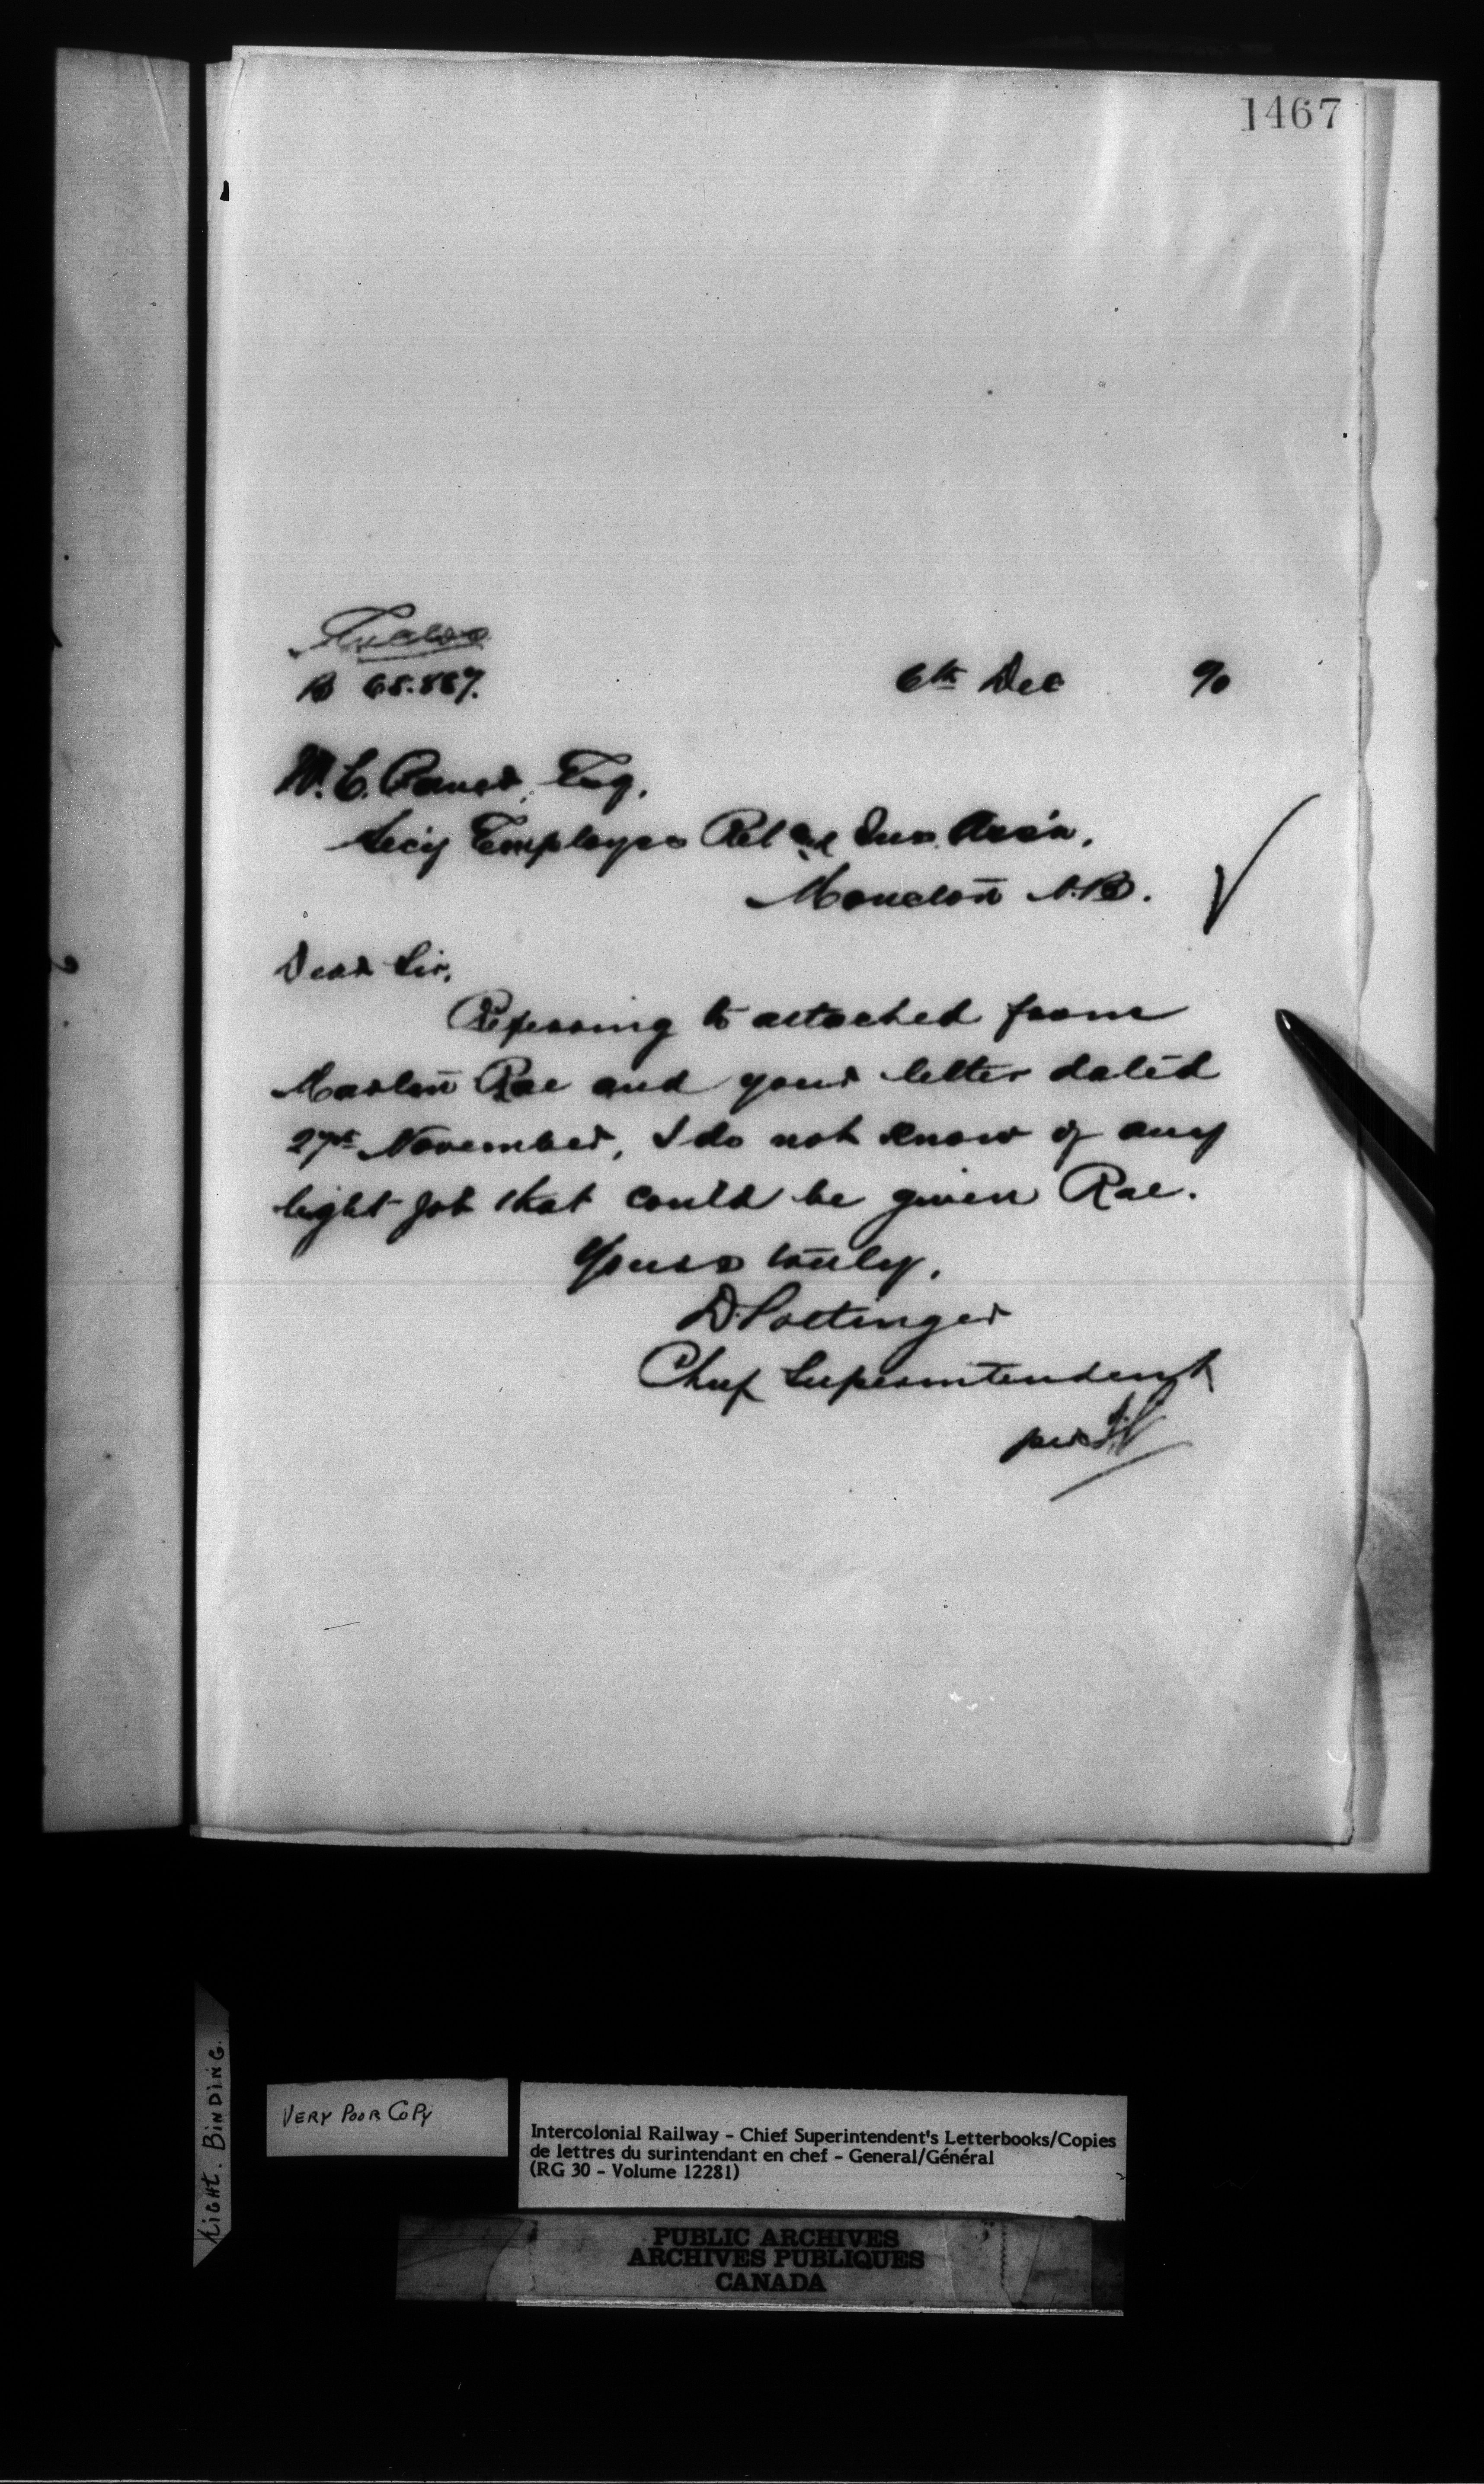 1467
Enclos
B 68.887.
6th Dec 90
W. C. Paver, Esq.
Sec'y Employes Rel and Ins. Ass'n.
Moncton N.B.
Dear Sir,
Referring to attached from
Marlin Rae and your letter dated
27th November, I do not know of any
light job that could be given Rae.
Yours truly,
D. Pottinger
Chief Superintendent
per
LIGHT. BINDING.
VERY POOR COPY
Intercolonial Railway - Chief Superintendent's Letterbooks/Copies
de lettres du surintendant en chef - General/Général
(RG 30 - Volume 12281)
PUBLIC ARCHIVES
ARCHIVES PUBLIQUES
CANADA